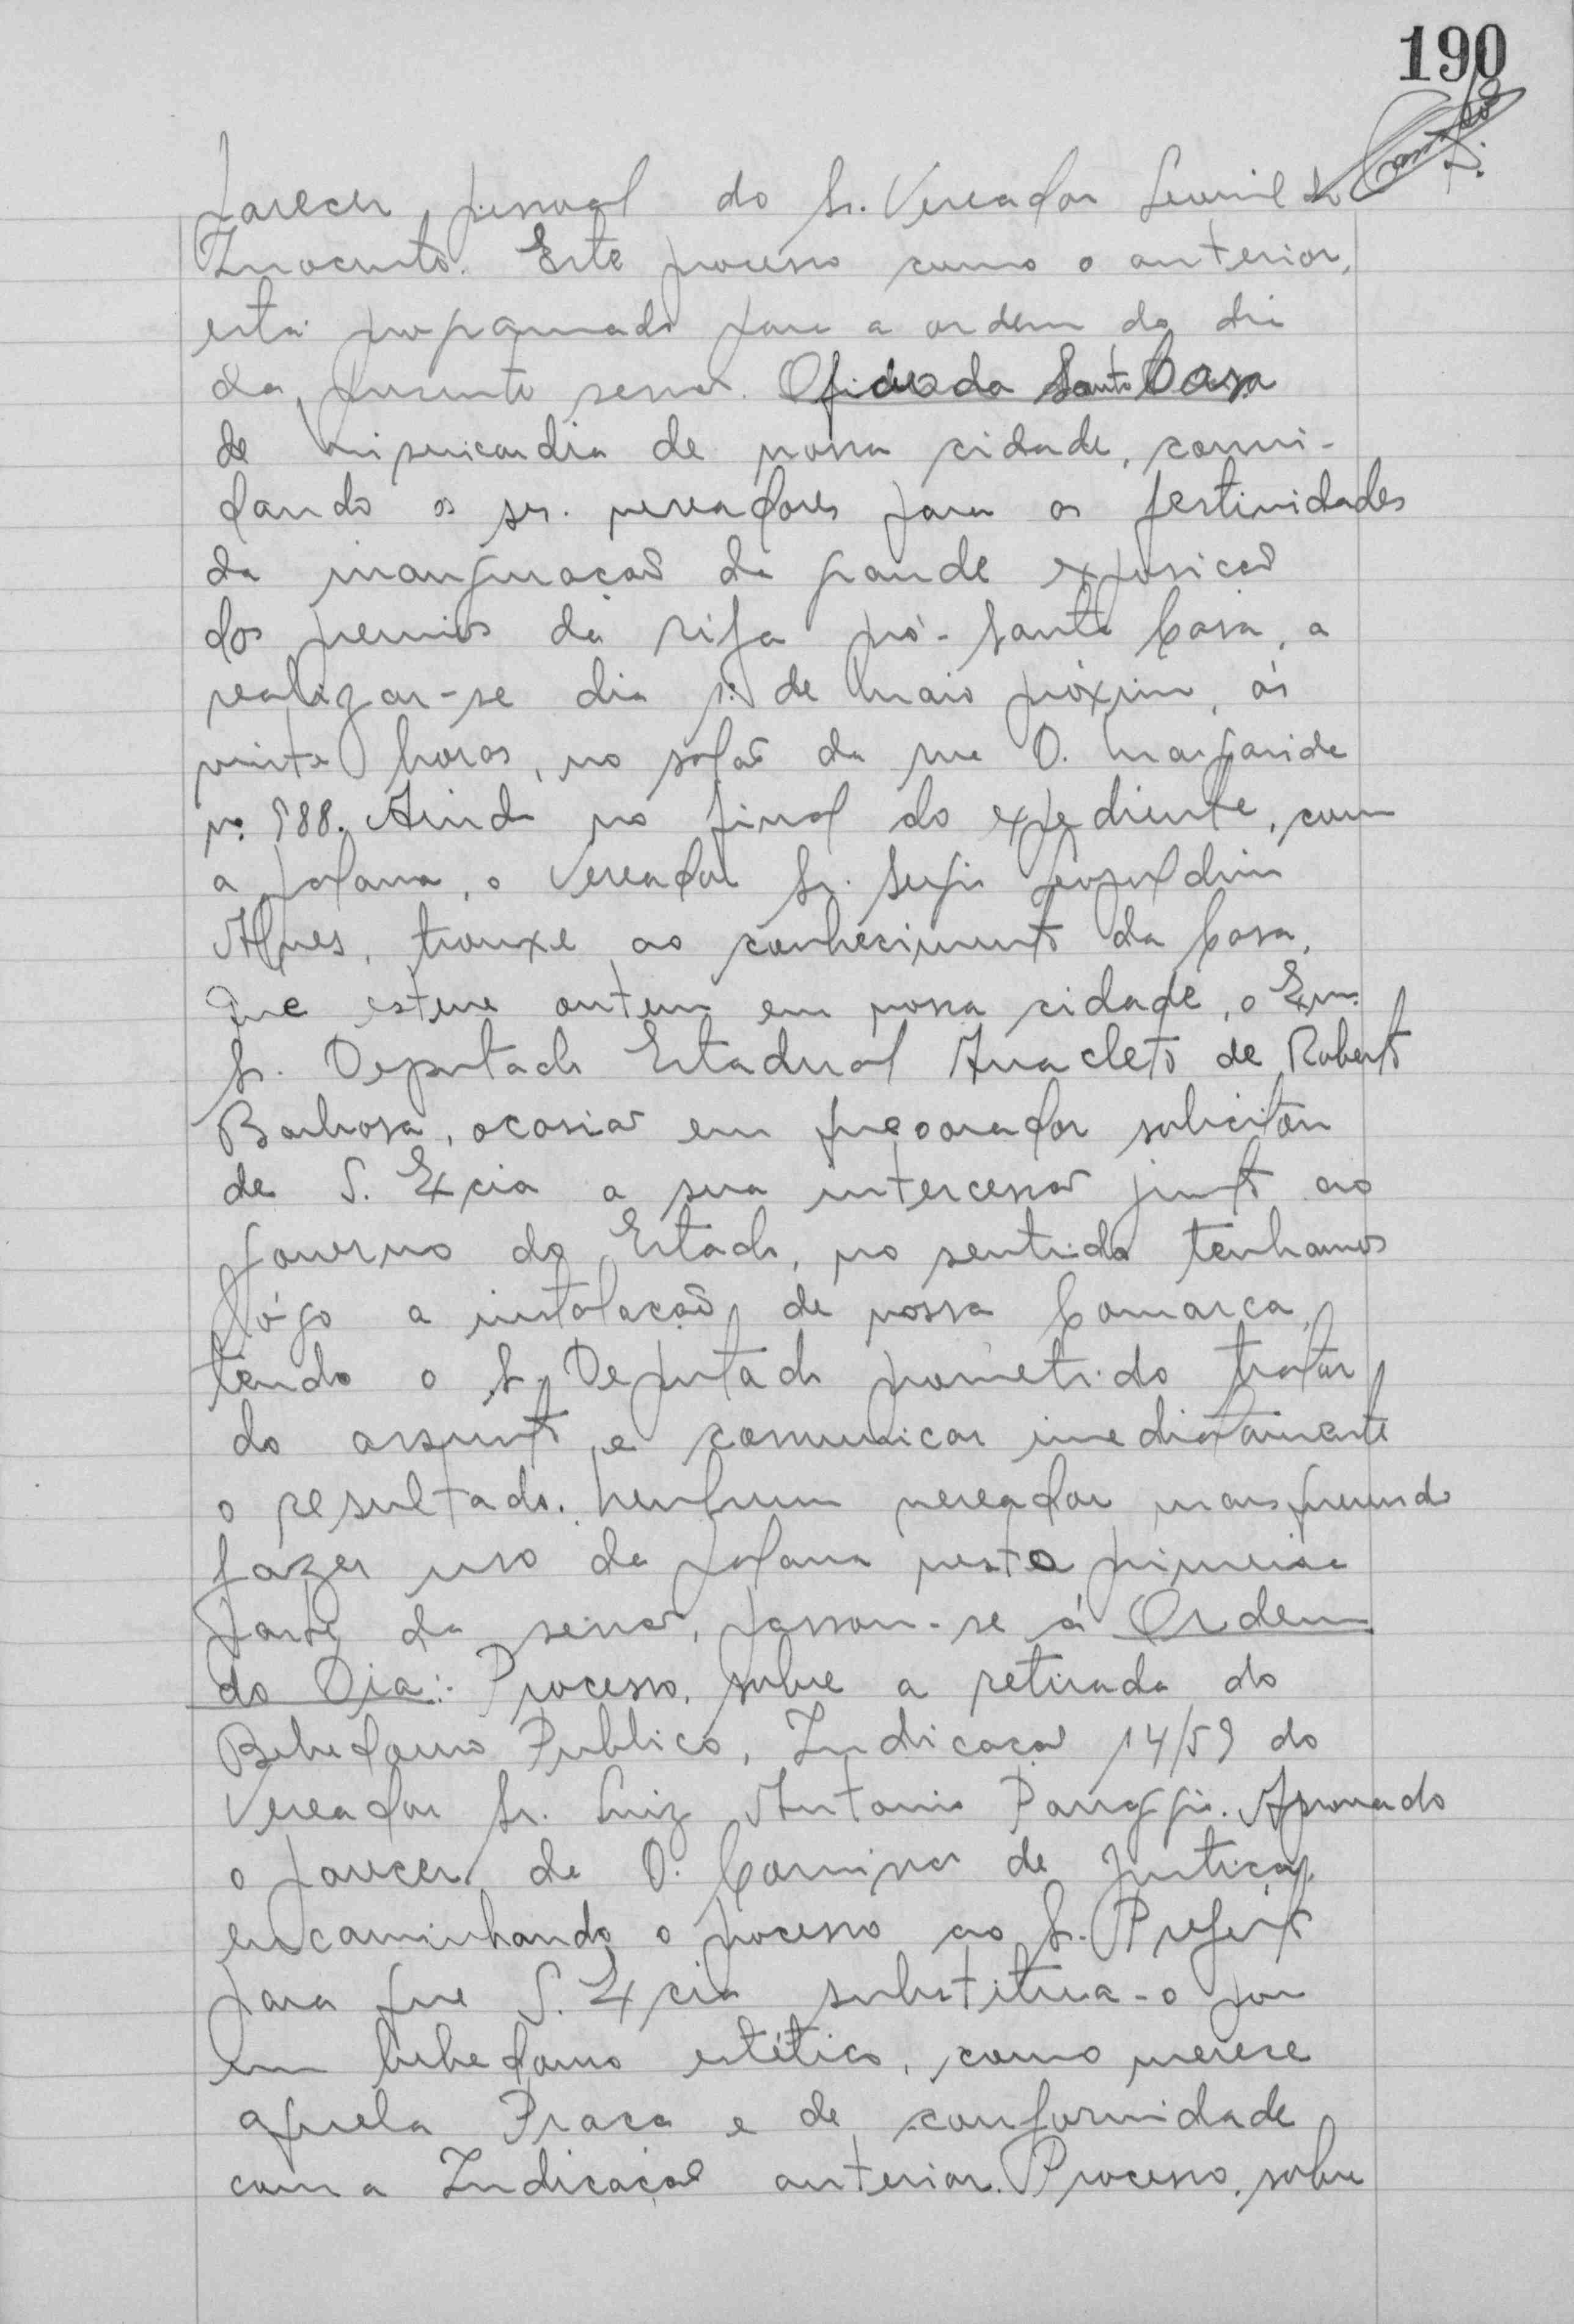 190
parecer pessoal do Sr. Vereador
Inocente. Este processo como o anterior,
está programado para a ordem do dia
da presente sessão. Oficio da Santa Casa
de Misericordia de nossa cidade, convi-
dando os srs. vereadores para as festividades
da inauguração da grande exposição
dos premios da rifa pró-Santa Casa, a
realizar-se dia 1º de Maio próximo, ás
vinte horas, no salão da rua D. Margarida
nº 988. Ainda no final do expediente, com
a palavra, o Vereador Sr. Sergio Leopoldino
Alves, trouxe ao conhecimento da Casa,
que esteve ontem em nossa cidade, o Exmo.
Sr. Deputado Estadual Anacleto de Roberto
Barbosa, ocasião em que o orador solicitou
de S. Excia a sua intercessão junto ao
Governo do Estado, no sentido tenhamos
lógo a instalação de nossa Comarca,
tendo o Sr. Deputado prometido tratar
do assunto e comunicar imediatamente
o resultado. Nenhum vereador mais querendo
fazer uso da palavra nesta primeira
parte da sessão, passou-se á Ordem
do Dia:- Processo, sobre a retirada do
Bebedouro Publico, Indicação 14/59 do
Vereador Sr. Luiz Antonio Panaggio. Aprovado
o parecer da D. Comissão de Justiça,
encaminhando o processo ao Sr. Prefeito
para que S. Excia substitua-o por
um bebedouro estético, como merece
aquela Praça e de conformidade
com a Indicação anterior. Processo, sobre